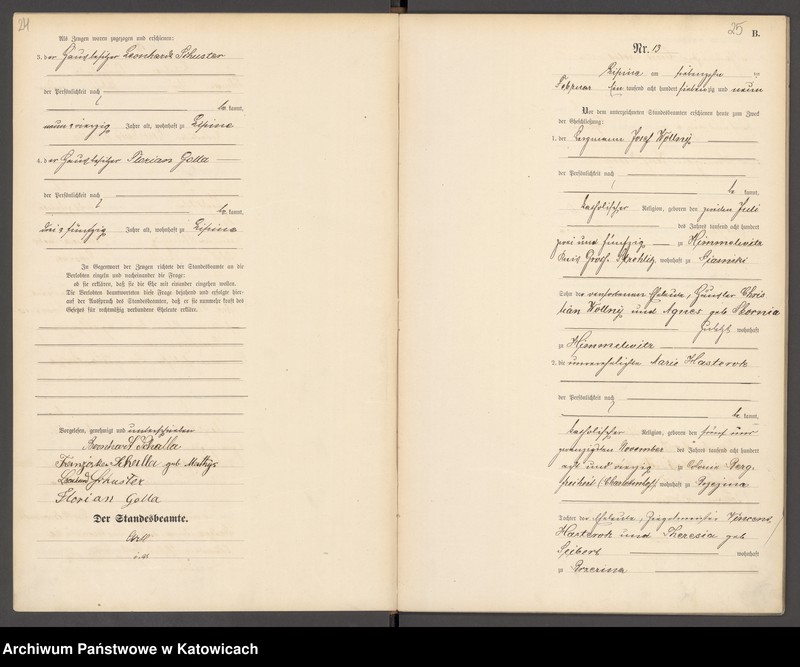 24
Als Zeugen waren zugezogen und erschienen:
3. der Hausbesitzer Leonhard Schuster
der Persönlichkeit nach
be kannt,
neun & vierzig Jahre alt, wohnhaft zu Lipine
4. der Hausbesitzer Florian Golla
der Persönlichkeit nach
be kannt,
drei & fünfzig Jahre alt, wohnhaft zu Lipine
In Gegenwart der Zeugen richtete der Standesbeamte an die
Verlobten einzeln und nacheinander die Frage:
ob sie erklären, daß sie die Ehe mit einander eingehen wollen.
Die Verlobten beantworteten diese Frage bejahend und erfolgte hier-
auf der Ausspruch des Standesbeamten, daß er sie nunmehr kraft des
Gesetzes für rechtmäßig verbundene Eheleute erkläre.
Vorgelesen, genehmigt und unterschrieben
Schalla
geb Mathys
Schuster
Florian Golla
Der Standesbeamte.
25
B.
Nr. 13
Lipine am siebenzehn
Februar tausend acht hundert siebenzig und neun
Vor dem unterzeichneten Standesbeamten erschienen heute zum Zweck
der Eheschließung:
1. der Bergmann Josef Wollny
der Persönlichkeit nach
be kannt,
katholischer Religion, geboren den zweiten Juli
des Jahres tausend acht hundert
zwei und fünfzig zu Himmelwitz
Kreis Groß Strehlitz wohnhaft zu
Sohn der verstorbenen Eheleute, Häusler Chris
tian Wollny und Agnes geb
zuletzt wohnhaft
zu Himmelwitz
2. die unverehelichte Marie
der Persönlichkeit nach
be kannt,
katholischer Religion, geboren den fünf und
zwanzigsten November des Jahres tausend acht hundert
acht und vierzig zu Colonie Berg-
freiheit wohnhaft zu
Tochter der Eheleute, Ziegelmeister Vincent
und Theresia geb
wohnhaft
zu
Archiwum Państwowe w Katowicach